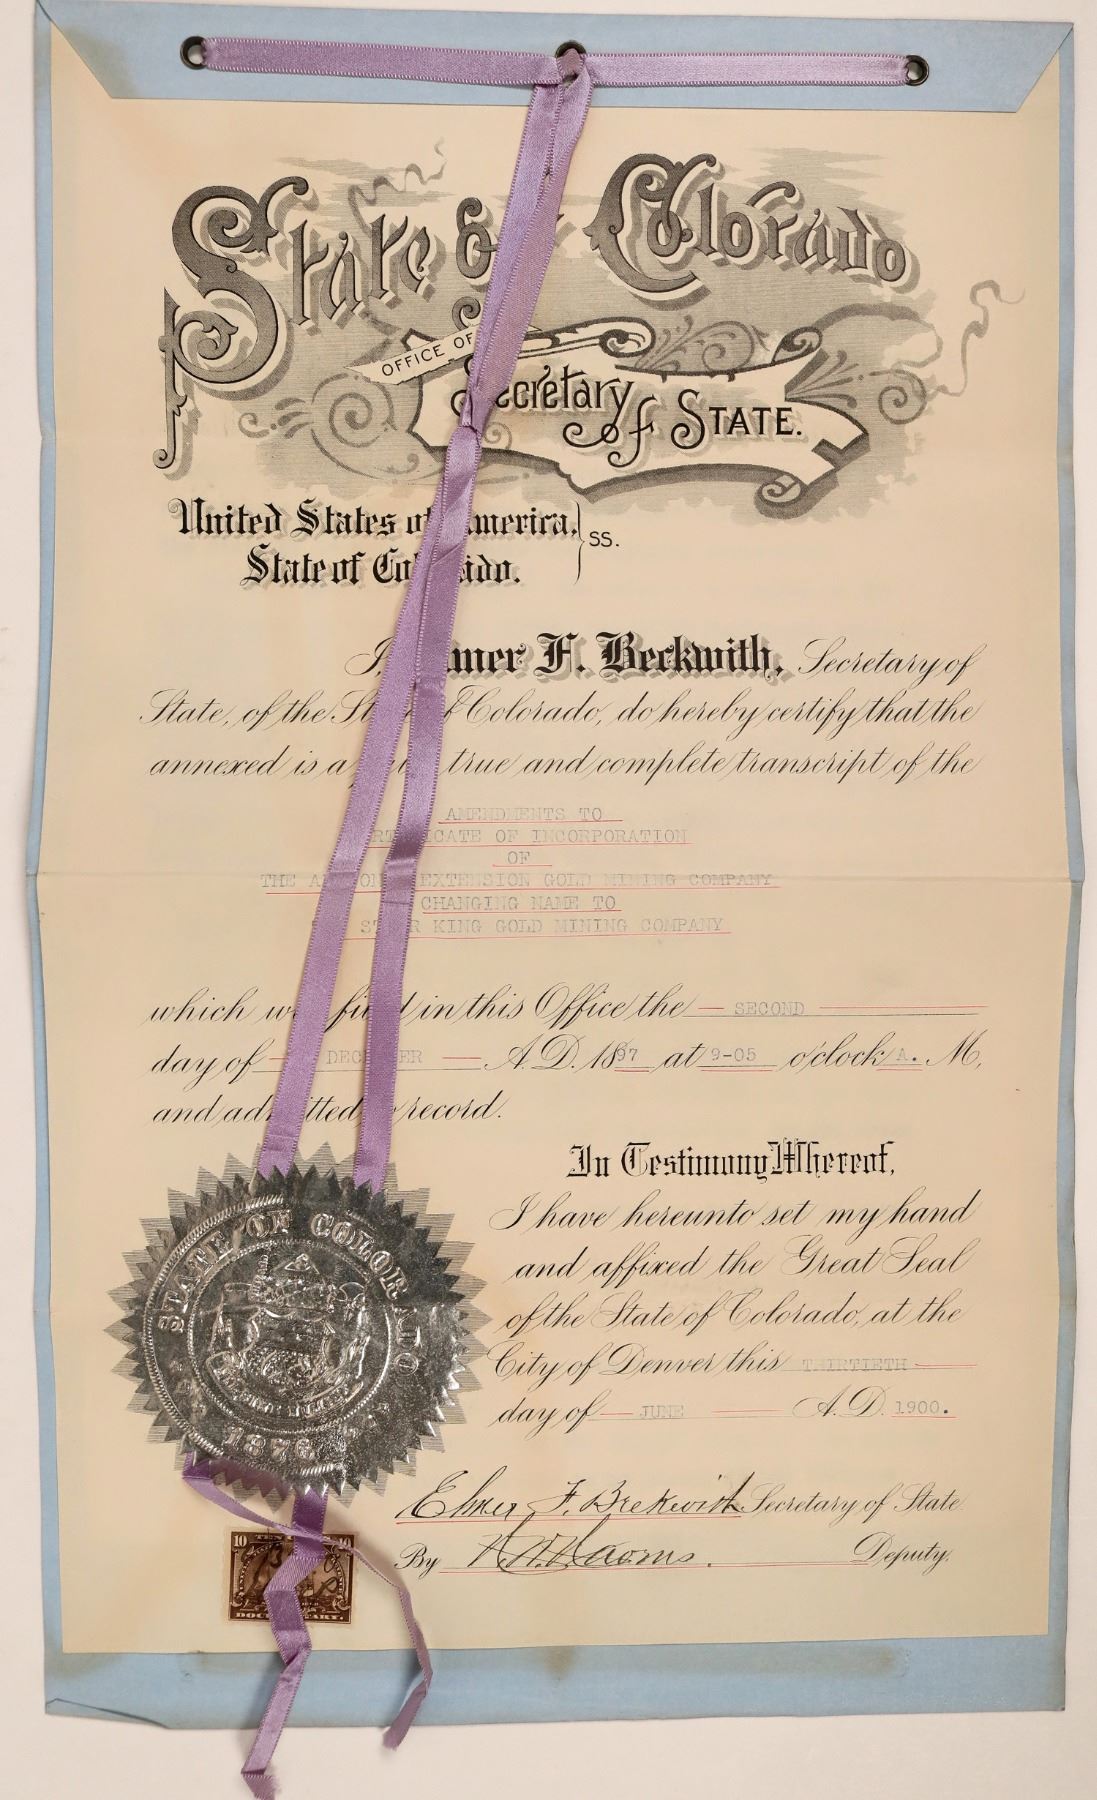 State of Colorado
OFFICE OF
Secretary of STATE.
United States of America,
State of Colorado.
} ss.
I, Elmer F. Beckwith, Secretary of
State, of the State of Colorado, do hereby certify that the
annexed is a full, true and complete transcript of the
AMENDMENTS TO
CERTIFICATE OF INCORPORATION
OF
THE EXTENSION GOLD MINING COMPANY
CHANGING NAME TO
STAR KING GOLD MINING COMPANY
which was filed in this Office the — SECOND
day of — DECEMBER — A.D. 1897 at 9-05 o'clock A. M,
and admitted to record.
In Testimony Whereof,
I have hereunto set my hand
and affixed the Great Seal
of the State of Colorado, at the
City of Denver this THIRTIETH —
day of — JUNE — A.D. 1900.
STATE OF COLORADO
1876
Elmer F. Beckwith Secretary of State
By Deputy.
10 10
DOCUMENTARY.